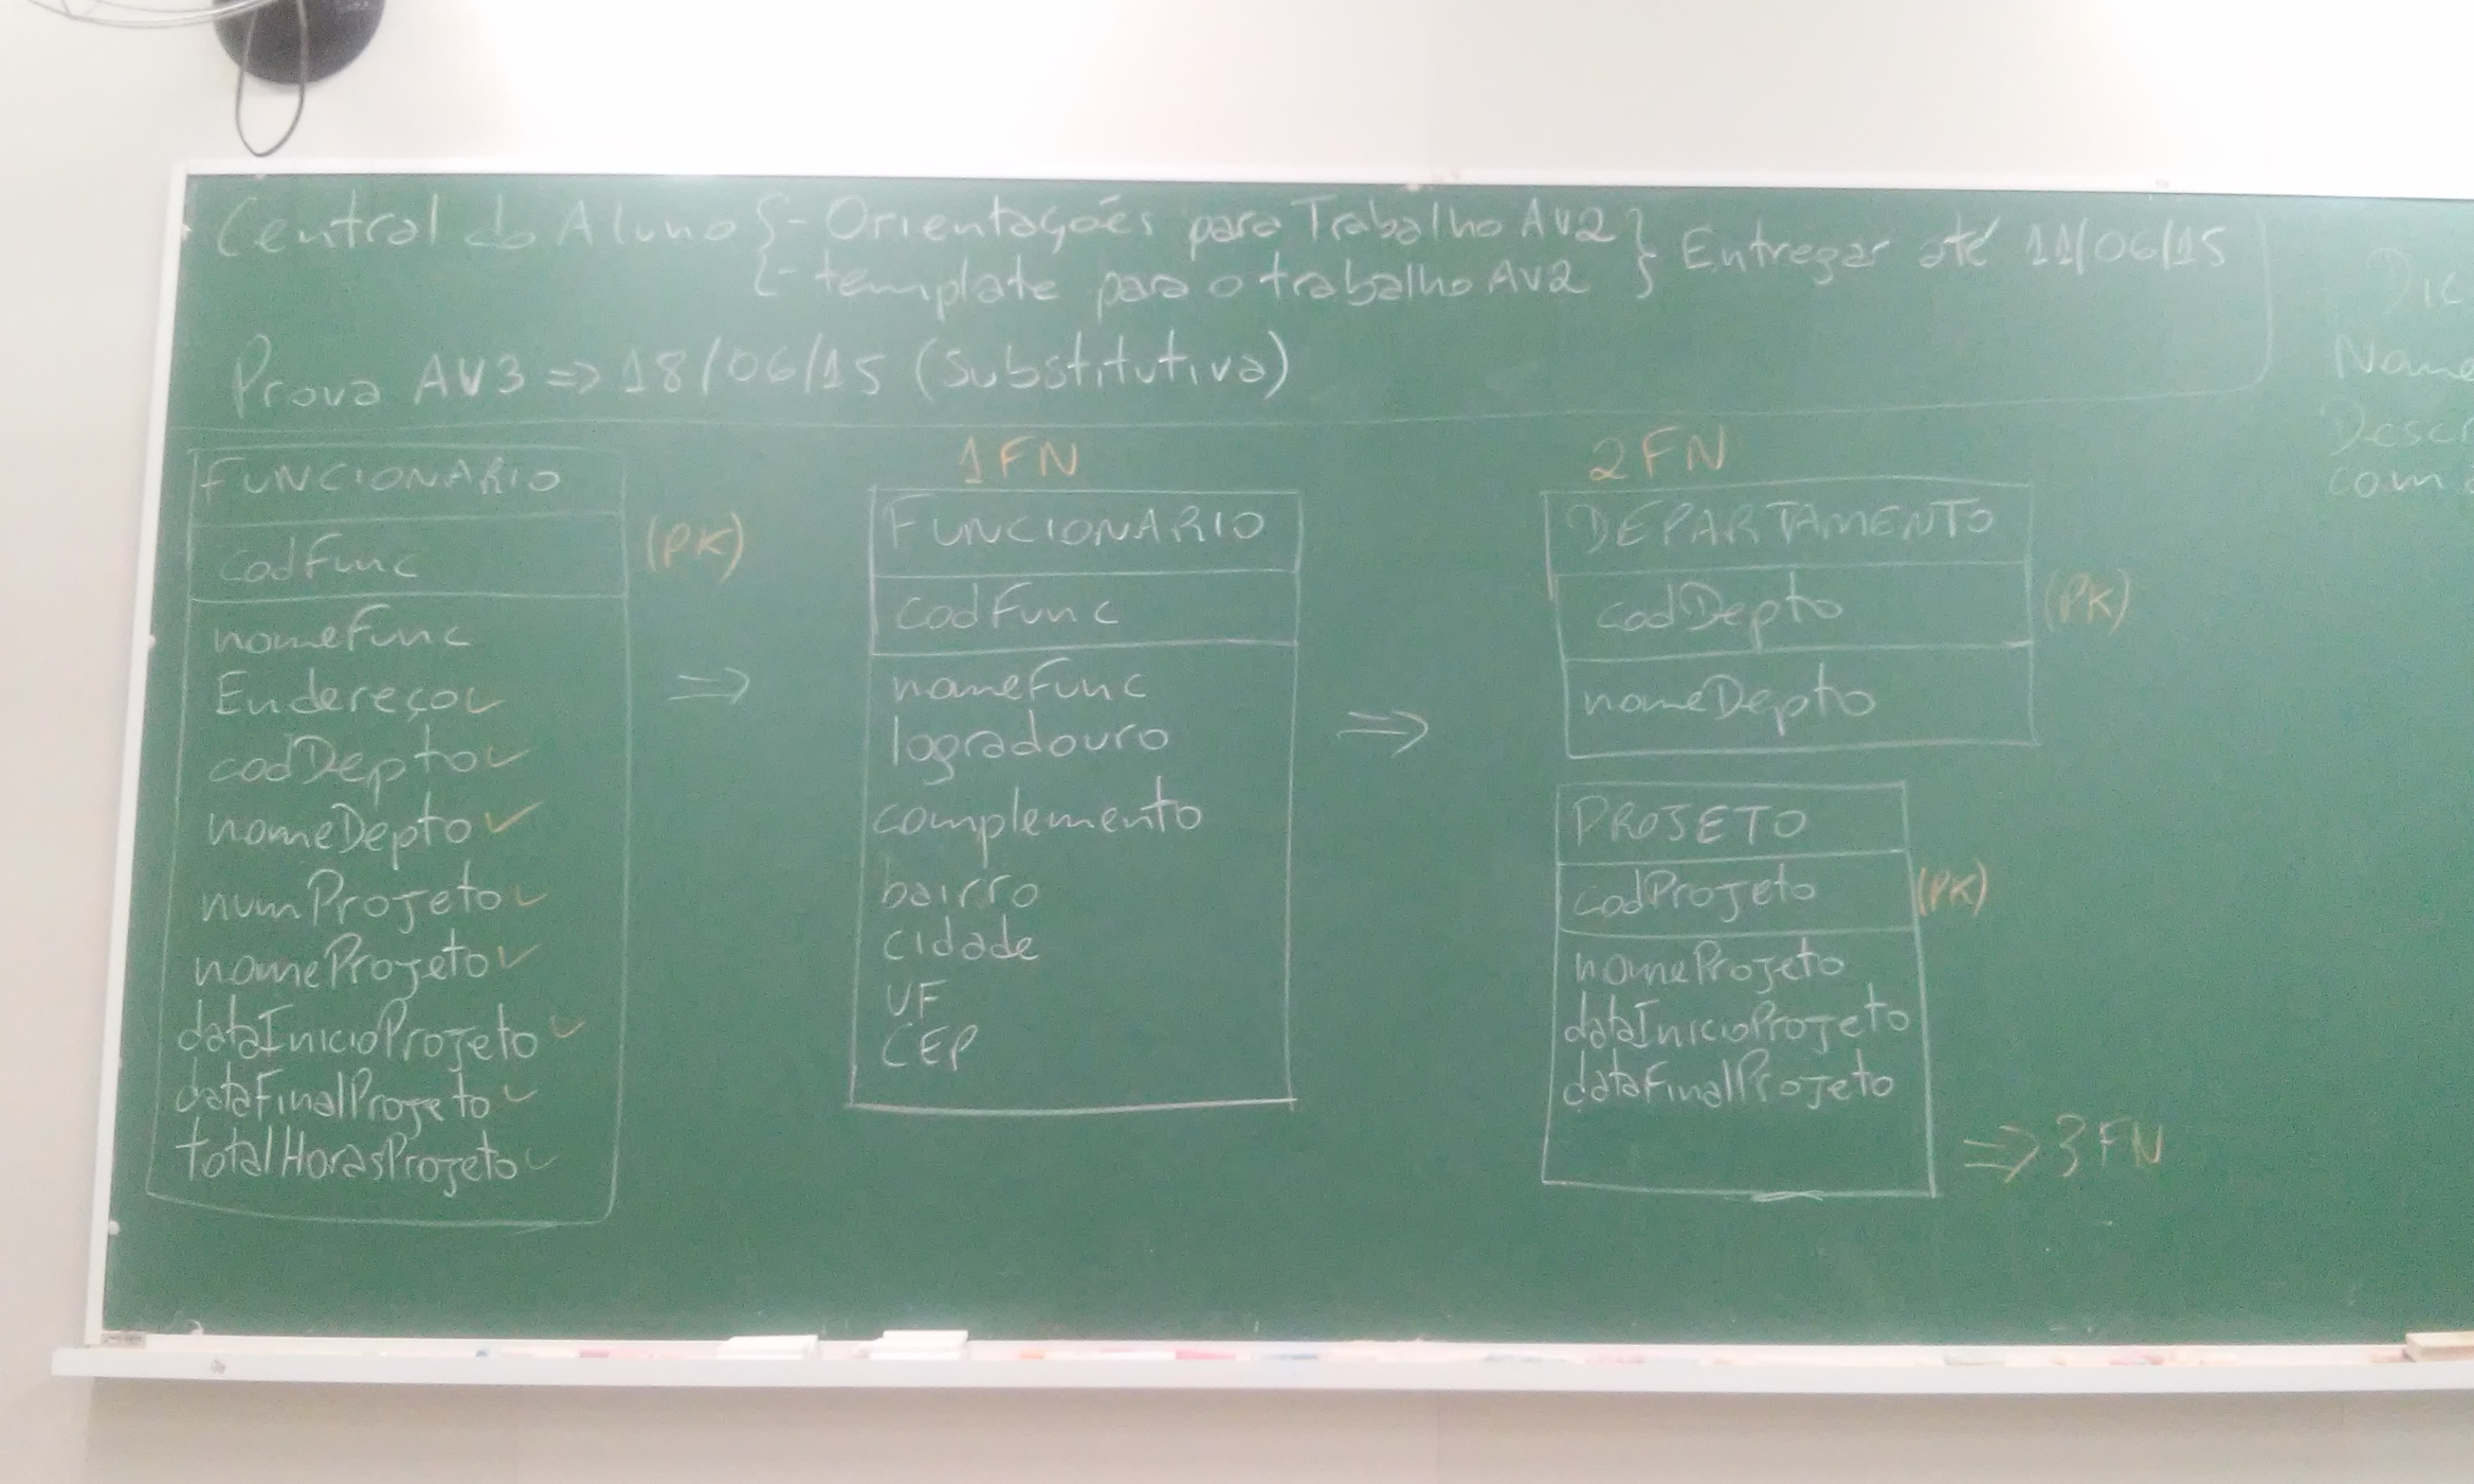 Central do Aluno {- Orientações para Trabalho AV2} Entregar até 11/06/15
{- template para o trabalho AV2 }
Prova AV3 => 18/06/15 (Substitutiva)
FUNCIONARIO
codFunc (PK)
nomeFunc
Endereço ✓
codDepto ✓
nomeDepto ✓
numProjeto ✓
nomeProjeto ✓
dataInicioProjeto ✓
dataFinalProjeto ✓
totalHorasProjeto ✓
=>
1FN
FUNCIONARIO
codFunc
nomeFunc
logradouro
complemento
bairro
cidade
UF
CEP
=>
2FN
DEPARTAMENTO
codDepto (PK)
nomeDepto
PROJETO
codProjeto (PK)
nomeProjeto
dataInicioProjeto
dataFinalProjeto
=> 3FN